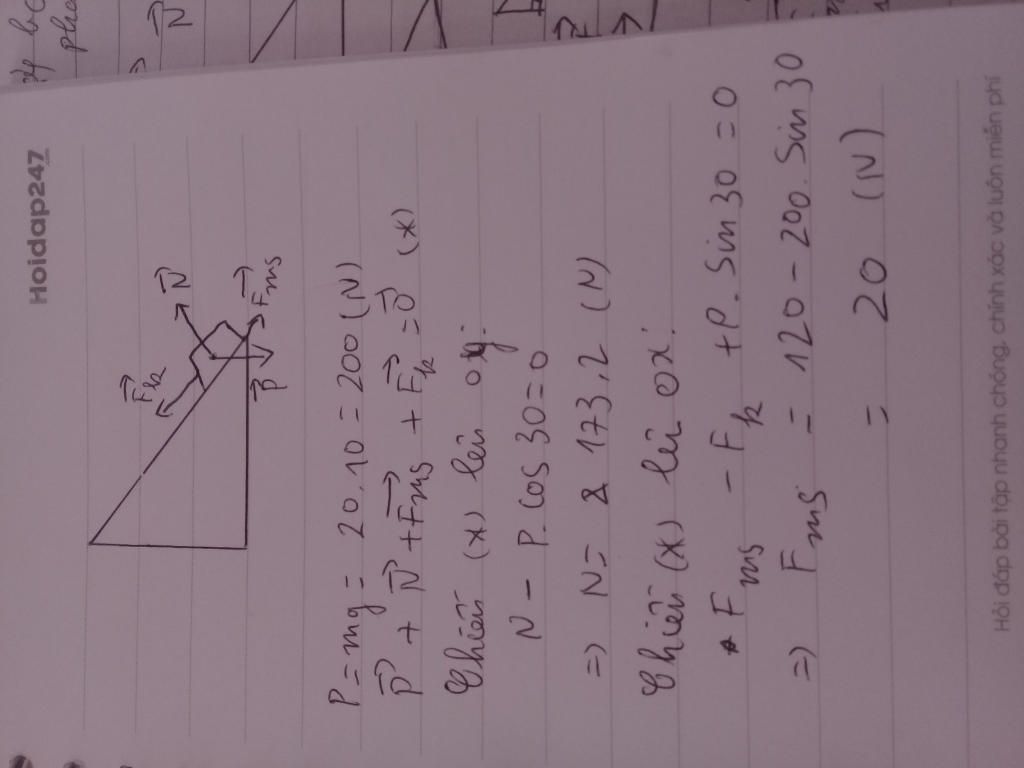 Hoidap247
N⃗
F⃗k
F⃗ms
P⃗
P = mg = 20.10 = 200 (N)
P⃗ + N⃗ + F⃗ms + F⃗k = 0⃗ (x)
Chiếu (x) lên oy:
N - P. cos 30 = 0
=> N = 173,2 (N)
Chiếu (x) lên ox:
Fms - Fk + P. Sin 30 = 0
=> Fms = 120 - 200. Sin 30
= 20 (N)
Hỏi đáp bài tập nhanh chóng, chính xác và luôn miễn phí